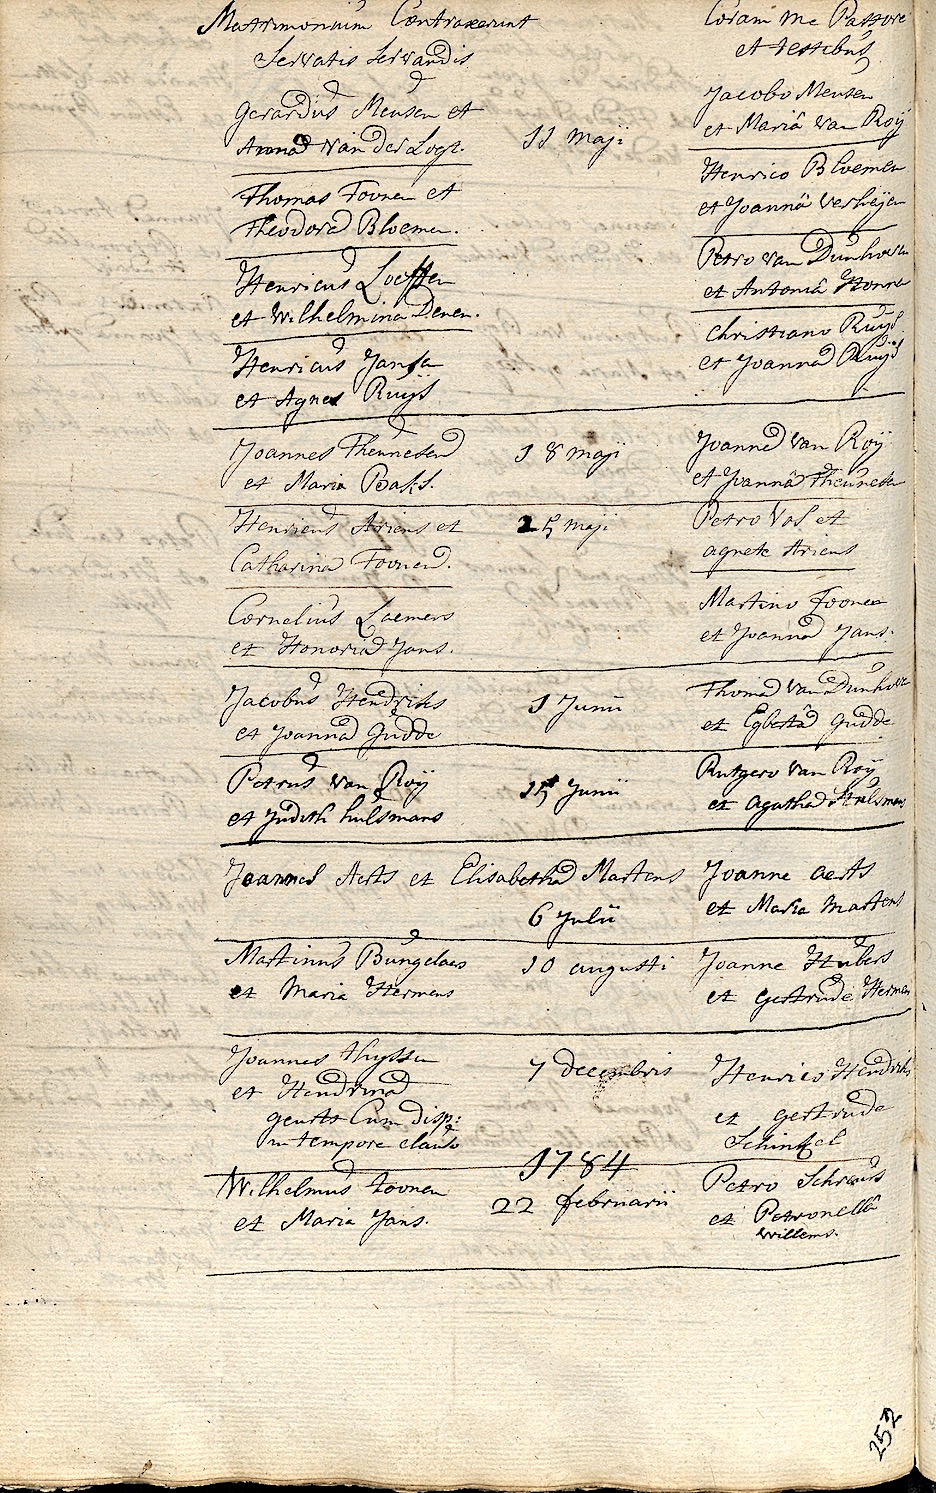 Matrimonium Contraxerunt
Servatis Servandis
Coram me Pastore
et testibus
Gerardus Meusen et
Anna van der Logt.
11 Maji
Jacobo Meusen
et Mariâ van Roÿ
Thomas Toonen et
Theodora Bloemen.
Henrico Bloemen
et Joannâ Verheijen
Henricus Loeffen
et Wilhelmina Denen.
Petro van Dunhoven
et Antoniâ
Henricus Jansen
et Agnes Ruÿs
Christiano Ruÿs
et Joanna Ruÿs
Joannes Theunesen
et Maria Baks.
18 maji
Joanne van Roÿ
et Joannâ Theunesen
Henricus Ariens et
Catharina Toonen.
25 maji
Petro Vos et
agnete Ariens
Cornelius Laemers
et Honoria Jans.
Martino Toonen
et Joanna Jans.
Jacobus Hendriks
et Joanna Gudde
1 Junii
Thoma van Dunhoven
et Egberta Gudde
Petrus van Roÿ
et Judith hulsmans
15 Junii
Rutgero van Roÿ
et agatha Hulsmans
Joannes Aerts et Elisabetha Martens
6 Julii
Joanne aerts
et Maria Martens
Martinus Bungelaes
et Maria Hermens
10 augusti
Joanne Hubers
et Gertrude Hermens
Joannes thyssen
et Hendrina
geurts Cum disp:
in tempore clauso
7 decembris
Henrico Hendriks
et gertrude
Schinkel
1784
Wilhelmus toonen
et Maria Jans.
22 februarii
Petro Schreurs
et Petronellâ
Willems.
252